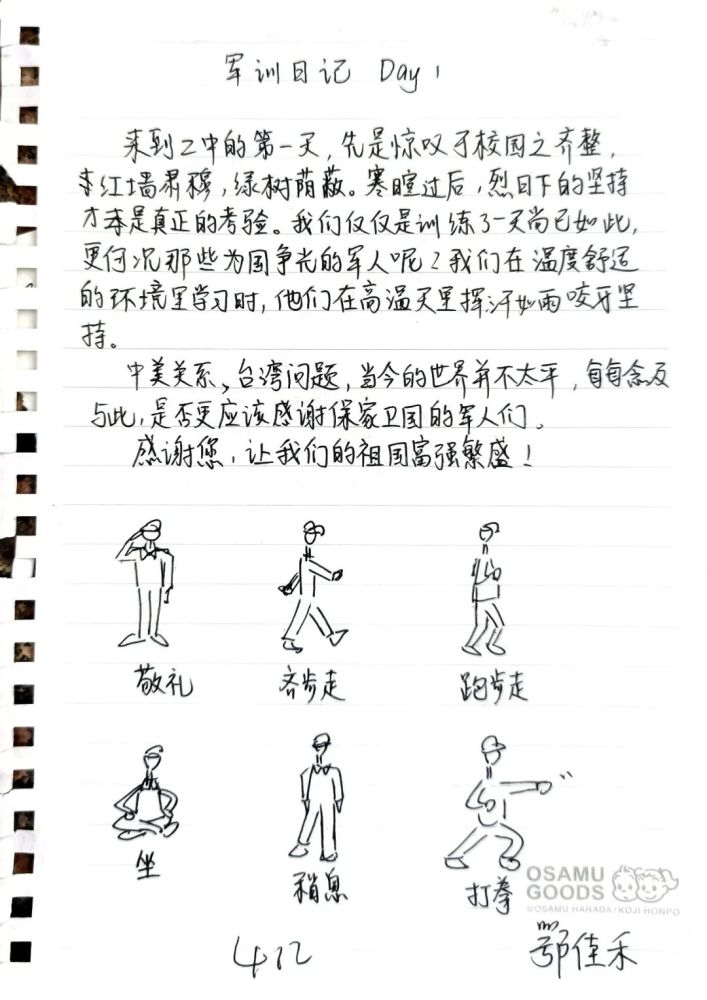 军训日记 Day 1
来到二中的第一天,先是惊叹于校园之齐整,
红墙肃穆,绿树荫蔽。寒暄过后,烈日下的坚持
才是真正的考验。我们仅仅是训练了一天尚已如此,
更何况那些为国争光的军人呢?我们在温度舒适
的环境里学习时,他们在高温天里挥汗如雨咬牙坚
持。
中美关系、台湾问题,当今的世界并不太平,每每念及
与此,是否更应该感谢保家卫国的军人们。
感谢您,让我们的祖国富强繁盛!
敬礼 齐步走 跑步走
坐 稍息 打拳
OSAMU
GOODS
©OSAMU HARADA / KOJI HONPO
412 鄂佳禾